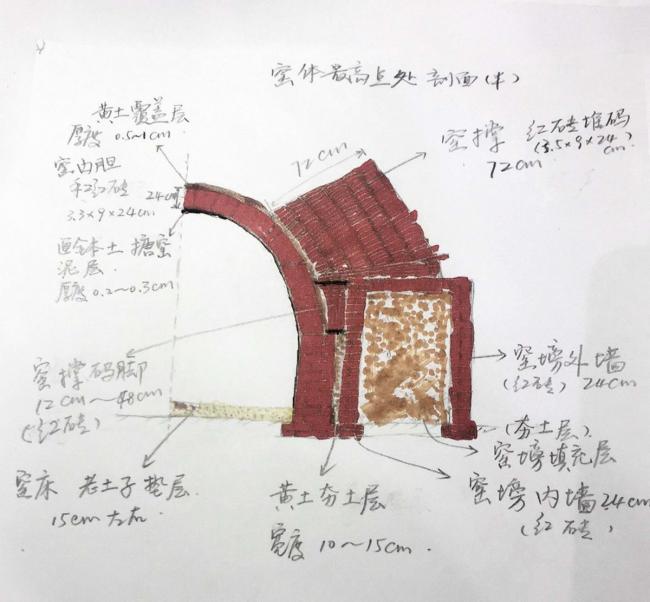 窑体最高点处剖面(半)
黄土覆盖层
厚度 0.5~1cm
窑内胆
红砖
3.3×9×24cm
24cm
本土搪窑
泥层
厚度 0.2~0.3cm
72cm
窑撑 红砖堆码
(3.5×9×24
cm)
72cm
窑撑码脚
12cm~48cm
(红砖)
窑塝外墙
(红砖) 24cm
(夯土层)
窑塝填充层
窑塝内墙24cm
(红砖)
窑床 老土子垫层
15cm左右
黄土夯土层
宽度 10~15cm.